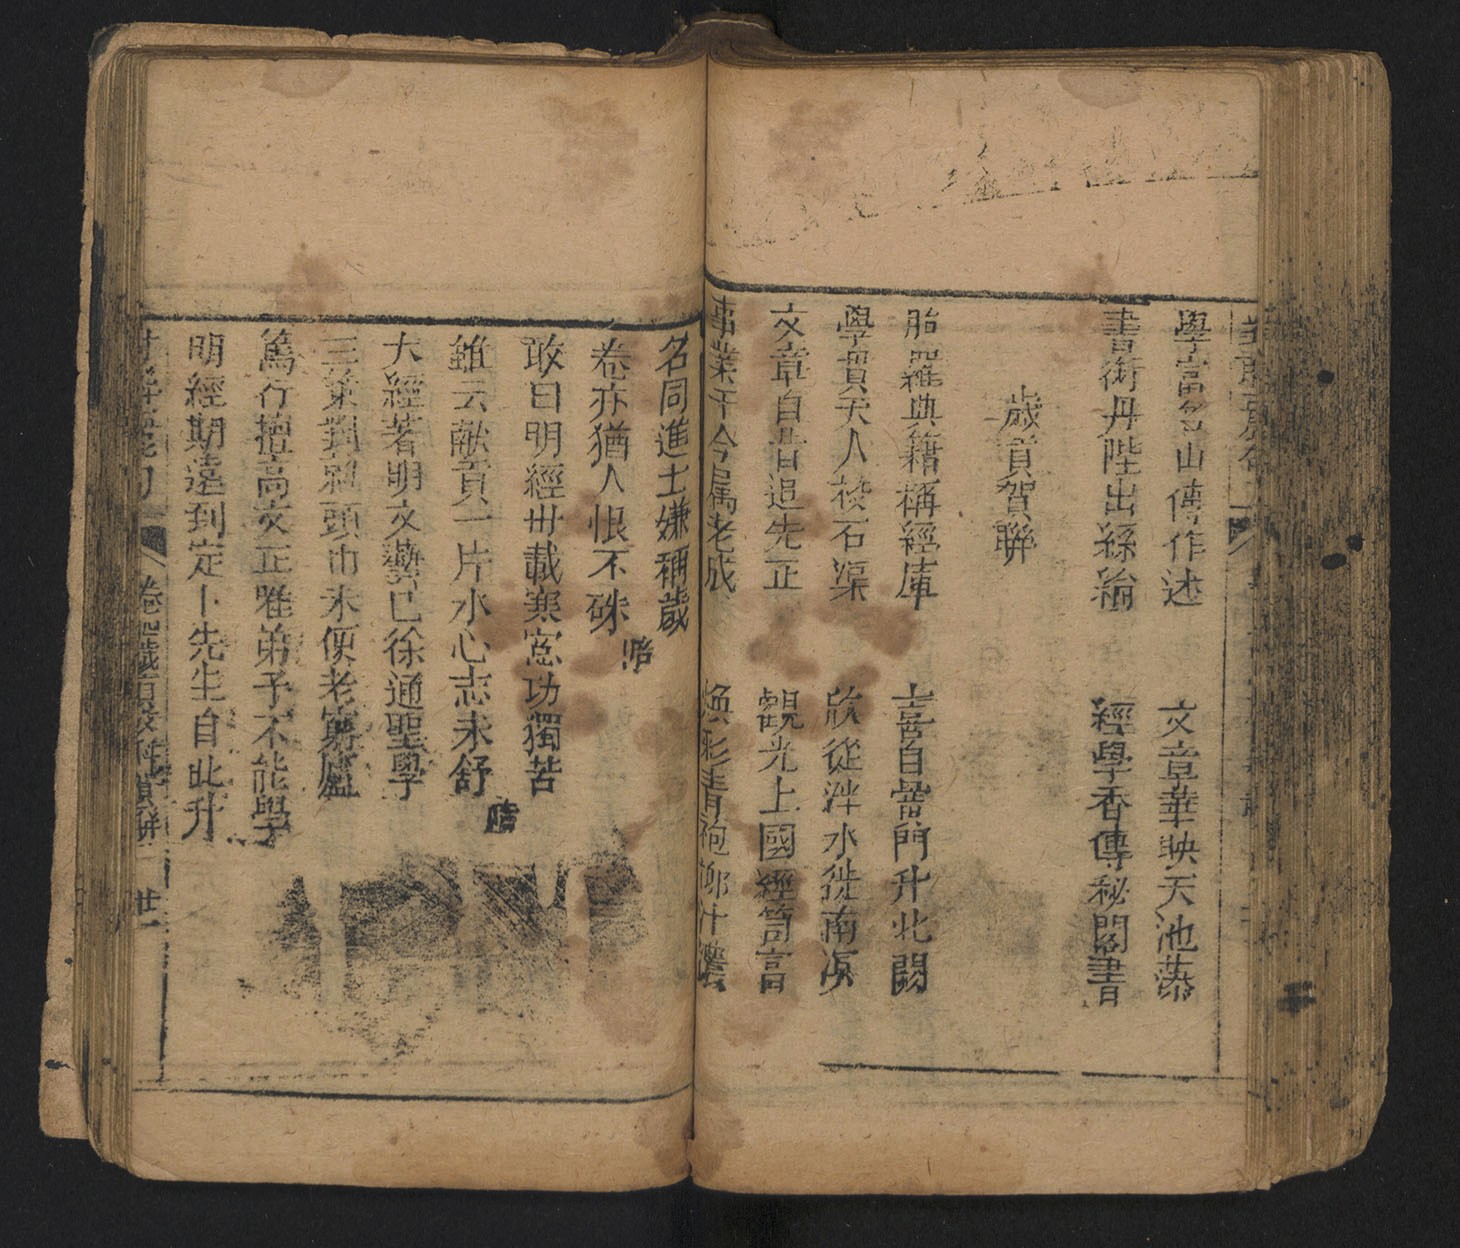 學富名山傳作述　文章華映天池藻
書銜丹陛出絲綸　經學香傳秘閣書
歲貢賀聯
胎羅典籍稱經庫　喜自黌門升北闕
學貫天人校石渠　欣從泮水徙南溟
文章自昔追先正　觀光上國經笥富
事業于今属老成　煥彩青袍柳汁濃
名同進士嫌稱歲
卷亦猶人恨不硃
敢曰明經卅載寒窓功獨苦
雖云献貢一片水心志未舒
大經著明文藝已徐通聖學
三葉對 頭巾未便老窮廬
篤行擅高文正唯弟子不能學
明經期遠到定卜先生自此升
卷 歲貢 聯 世